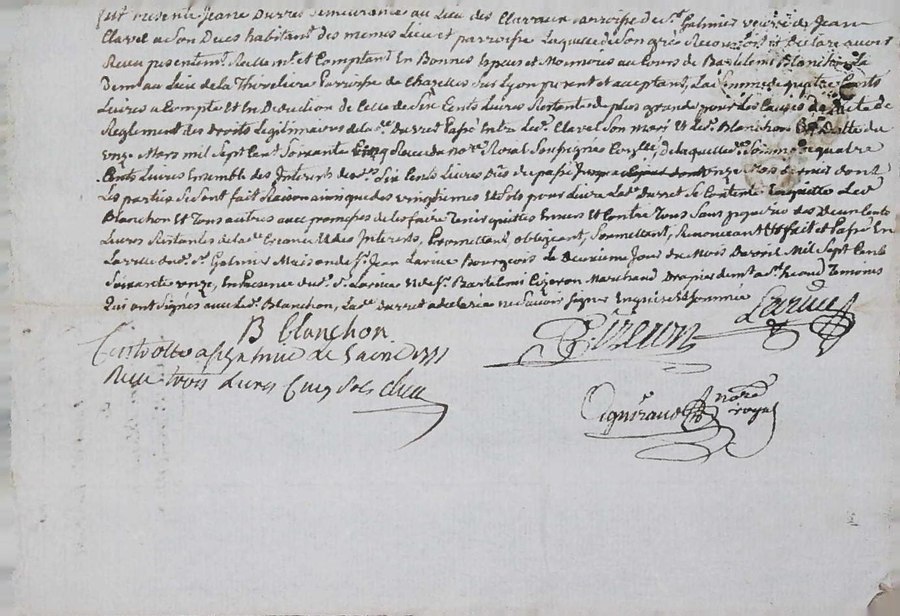 fut presente Jeane Durret demeurante au Lieu des Clavaux parroisse de St. Galmier veuve de Jean
Clavel a Son Deces habitant des memes Lieu et parroisse Laquelle de Son gré a Reconnu et declare avoir
Receu presentemt. Réellemt. et Comptant En Bonnes Especes et Monnoies au Cours de Bartelemi Blanchon La
Dem. au Lieu de la Thiveliere Parroisse de Chazelles Sur Lyon present et acceptant, La Somme de quatre Cents
Livres a Compte Et En Deduction de Celle de Six Cents Livres Restante de plus grande pour les Causes de
Reglement des droits Legitimaires de la de. Durret Passé Entre Led. Clavel Son mari Et led. Blanchon En datte du
onze Mars mil Sept Cent Soixante Cinq Receu du nore. Royal Soussigné De laquelle de. Somme quatre
Cents Livres Ensemble des Interets desd. Six Cents Livres du passé onze dont
Les parties Se Sont fait Raison ainsi que des vingtiemes et Sols pour Livre La de. Durret Se Contente En quitte Led.
Blanchon Et Tous autres aux promesses de les faire Tenir quittes Envers Et Contre Tous Sans prejudice des Deux Cents
Livres Restantes de lade. Creance Et des Interets, Promettant, obligeant, Soumettant, Renonceant Fait et Passé En
La ville dud. St. Galmier Maison de Sr. Jean Larive Bourgeois Le Deuxieme Jour du Mois Davril Mil Sept Cent
Soixante onze, En Presence dud. Sr. Larive Et de Sr. Bartelemi Cizeron Marchand Drapier demt. aud. Temoins
Qui ont Signés avec Led. Blanchon, La de. Durret a declaré ne Scavoir Signer Enquise et Sommée
B Blanchon
Cizeron
Larive
Controllé a St Galmier le 1771
Receu trois Livres Cinq Sols
nore royal